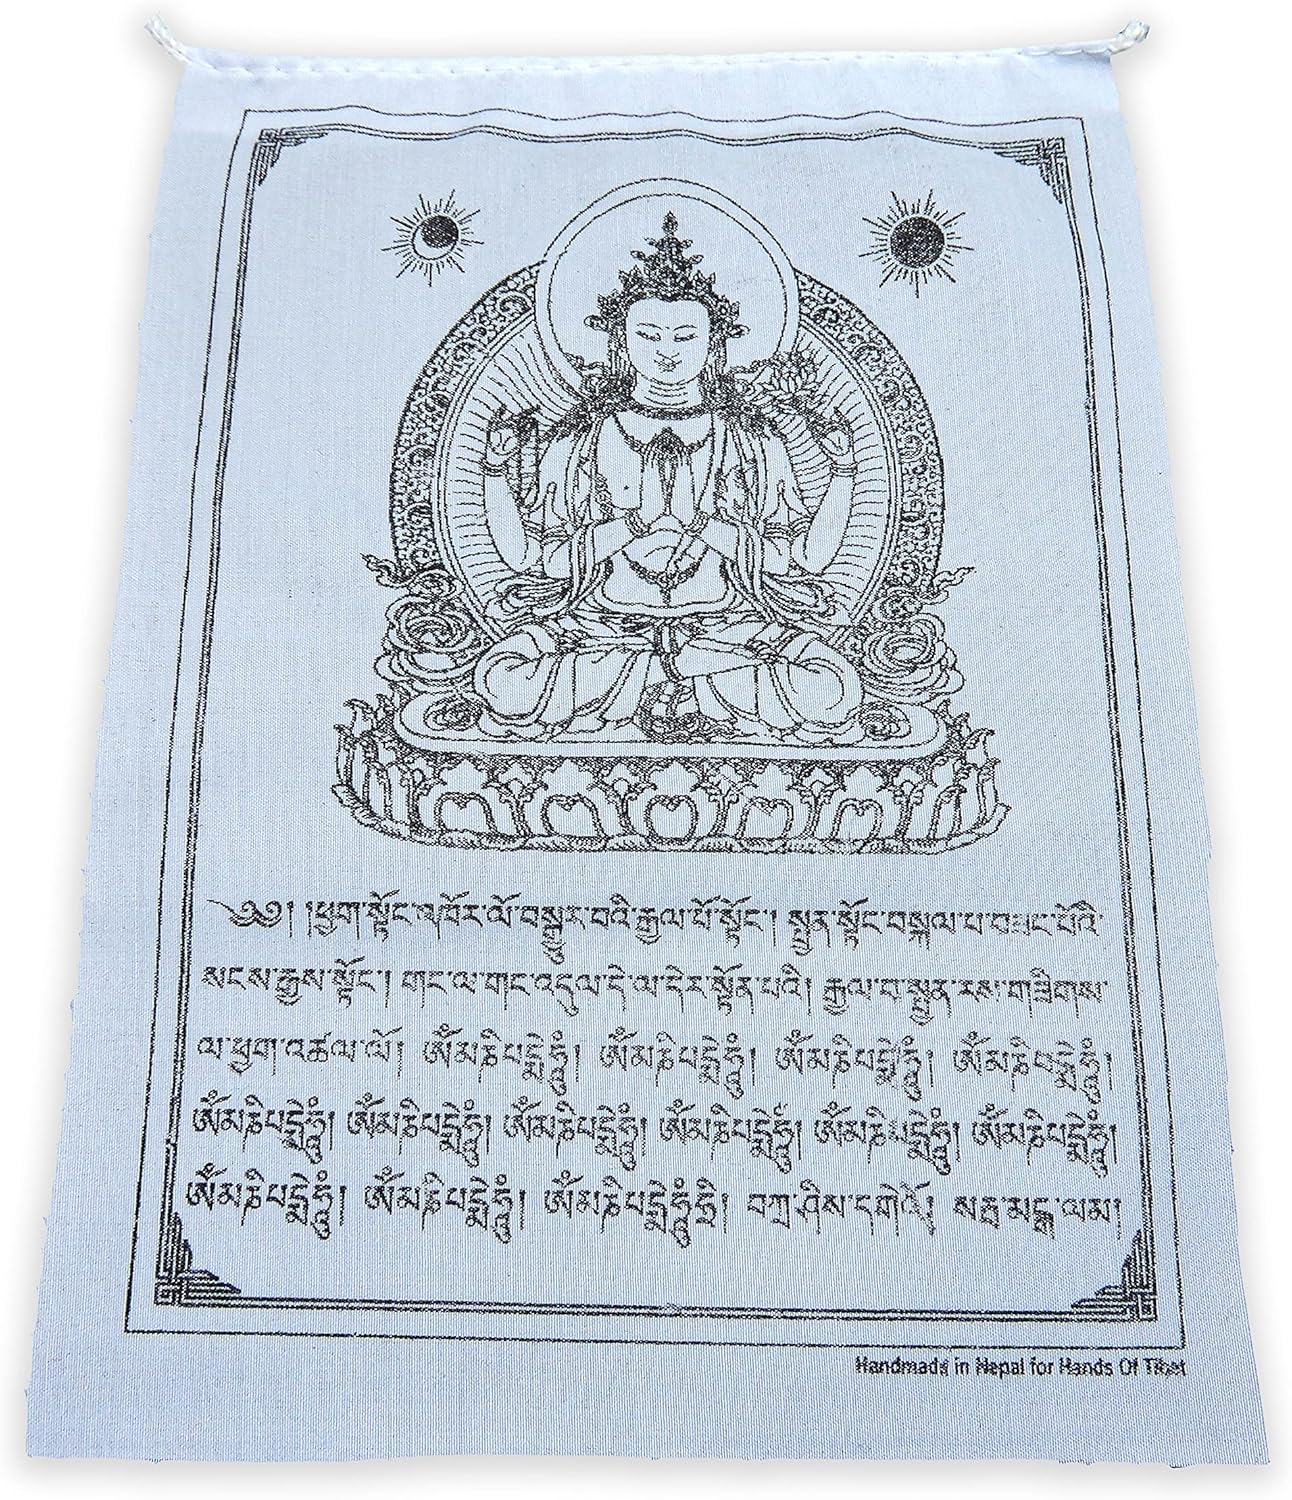 ༄༅། །ཕྱག་སྟོང་འཁོར་ལོ་བསྒྱུར་བའི་རྒྱལ་པོ་སྟོང་། སྤྱན་སྟོང་བསྐལ་པ་བཟང་པོའི་
སངས་རྒྱས་སྟོང་། གང་ལ་གང་འདུལ་དེ་ལ་དེར་སྟོན་པའི། རྒྱལ་བ་སྤྱན་རས་གཟིགས་
ལ་ཕྱག་འཚལ་ལོ། ཨོཾ་མ་ཎི་པདྨེ་ཧཱུྃ། ཨོཾ་མ་ཎི་པདྨེ་ཧཱུྃ། ཨོཾ་མ་ཎི་པདྨེ་ཧཱུྃ། ཨོཾ་མ་ཎི་པདྨེ་ཧཱུྃ།
ཨོཾ་མ་ཎི་པདྨེ་ཧཱུྃ། ཨོཾ་མ་ཎི་པདྨེ་ཧཱུྃ། ཨོཾ་མ་ཎི་པདྨེ་ཧཱུྃ། ཨོཾ་མ་ཎི་པདྨེ་ཧཱུྃ། ཨོཾ་མ་ཎི་པདྨེ་ཧཱུྃ། ཨོཾ་མ་ཎི་པདྨེ་ཧཱུྃ།
ཨོཾ་མ་ཎི་པདྨེ་ཧཱུྃ། ཨོཾ་མ་ཎི་པདྨེ་ཧཱུྃ། ཨོཾ་མ་ཎི་པདྨེ་ཧཱུྃ་ཧྲཱི། བཀྲ་ཤིས་དགེའོ། སརྦ་མངྒ་ལམ།
Handmade in Nepal for Hands Of Tibet